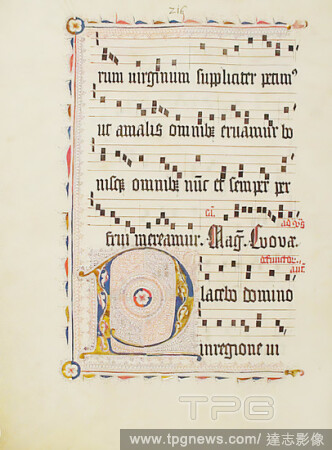 216
rum virginum suppliciter petim⁹
ut a malis omnibꝫ eruamur bo
nisqꝫ omnibꝫ nūc et semper per
frui mereamur. Mag̅. Evovae.
Placebo domino
in regione vi
TPG
www.tpgnews.com/ 達志影像